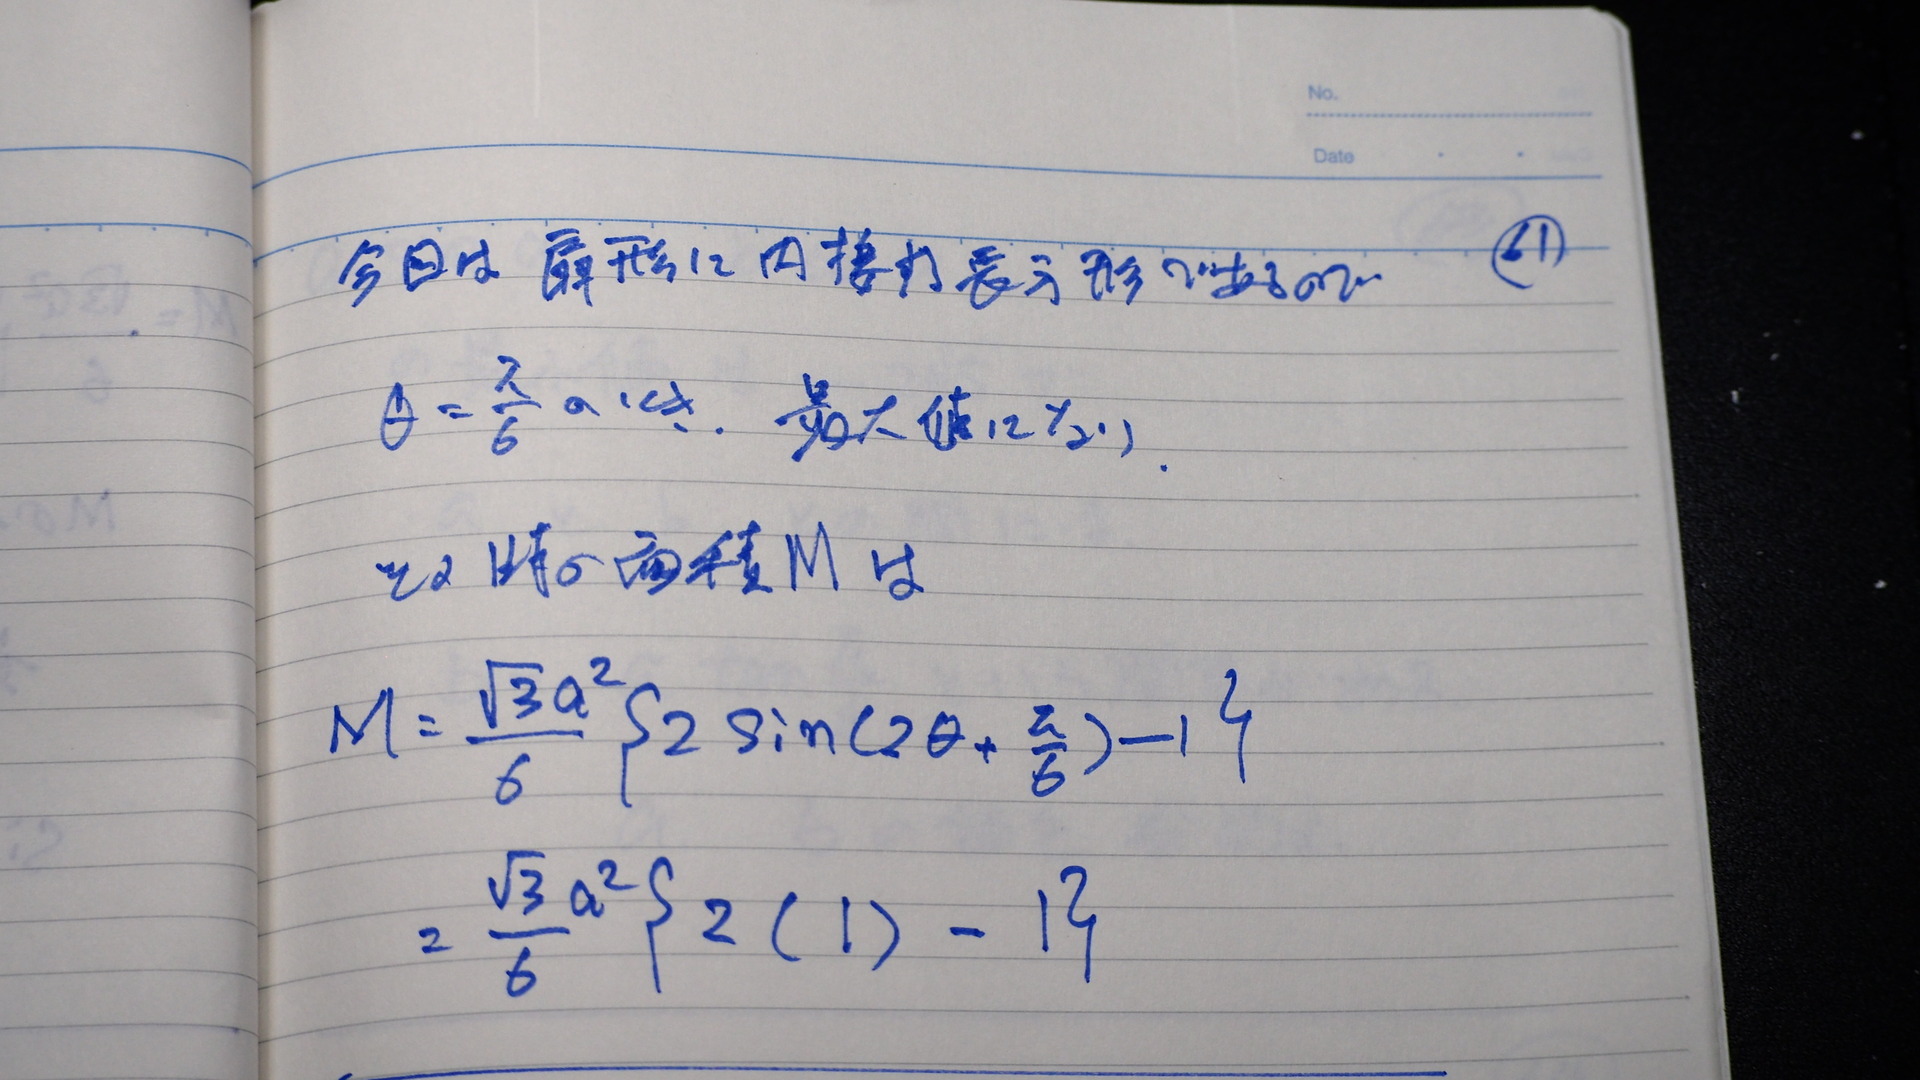 No.
Date
61
今日は 扇形に内接する長方形であるので
θ = π/6 のとき. 最大値になり.
その時の面積 M は
M = √3a²/6 {2 sin(2θ + π/6) - 1}
= √3/6 a² {2 (1) - 1}